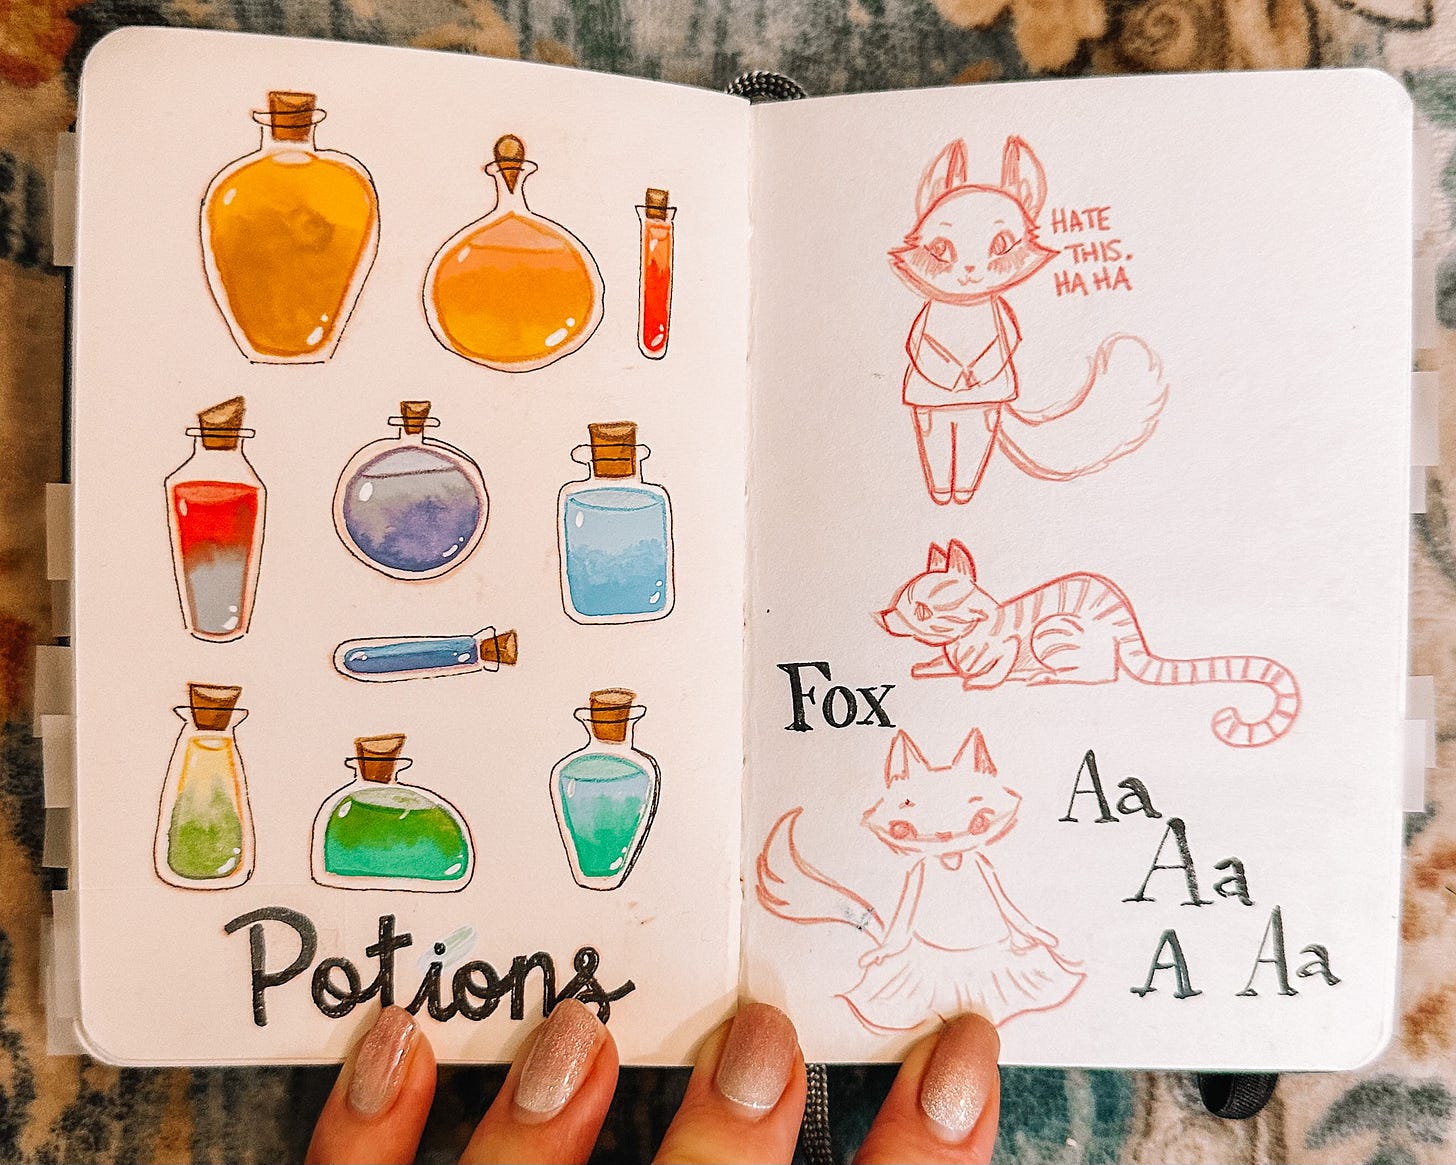 Potions
HATE
THIS.
HA HA
Fox
Aa
Aa
A Aa